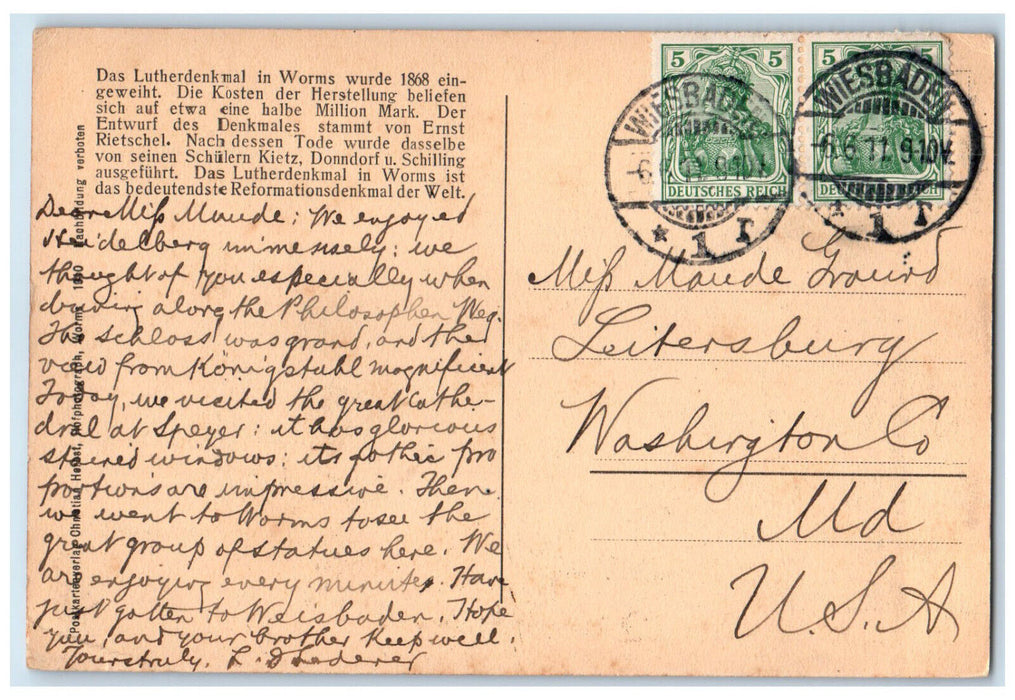 Das Lutherdenkmal in Worms wurde 1868 ein-
geweiht. Die Kosten der Herstellung beliefen
sich auf etwa eine halbe Million Mark. Der
Entwurf des Denkmales stammt von Ernst
Rietschel. Nach dessen Tode wurde dasselbe
von seinen Schülern Kietz, Donndorf u. Schilling
ausgeführt. Das Lutherdenkmal in Worms ist
das bedeutendste Reformationsdenkmal der Welt.
Dear Miss Maude: We enjoyed
Heidelberg immensely: we
thought of you especially when
driving along the Philosophen Weg.
The schloss was grand, and the
view from Königstuhl magnificent
Today, we visited the great Cathe-
dral at Speyer: it has glorious
stained windows: its gothic pro
portions are impressive. Then
we went to Worms to see the
great group of statues here. We
are enjoying every minute. Have
just gotten to Weisbaden. Hope
you, and your brother keep well.
Yours truly, L. D
Postkartenverlag Christian Herbst, Hofphotograph, Worms 1910 Nachbildung verboten
5 5
DEUTSCHES REICH
5 5
DEUTSCHES REICH
WIESBADEN
-6.6.11.9-10V.
* 1 r
WIESBADEN
-6.6.11.9-10V.
* 1 r
Miss Maude
Leitersburg
Washington Co
Md
U.S.A